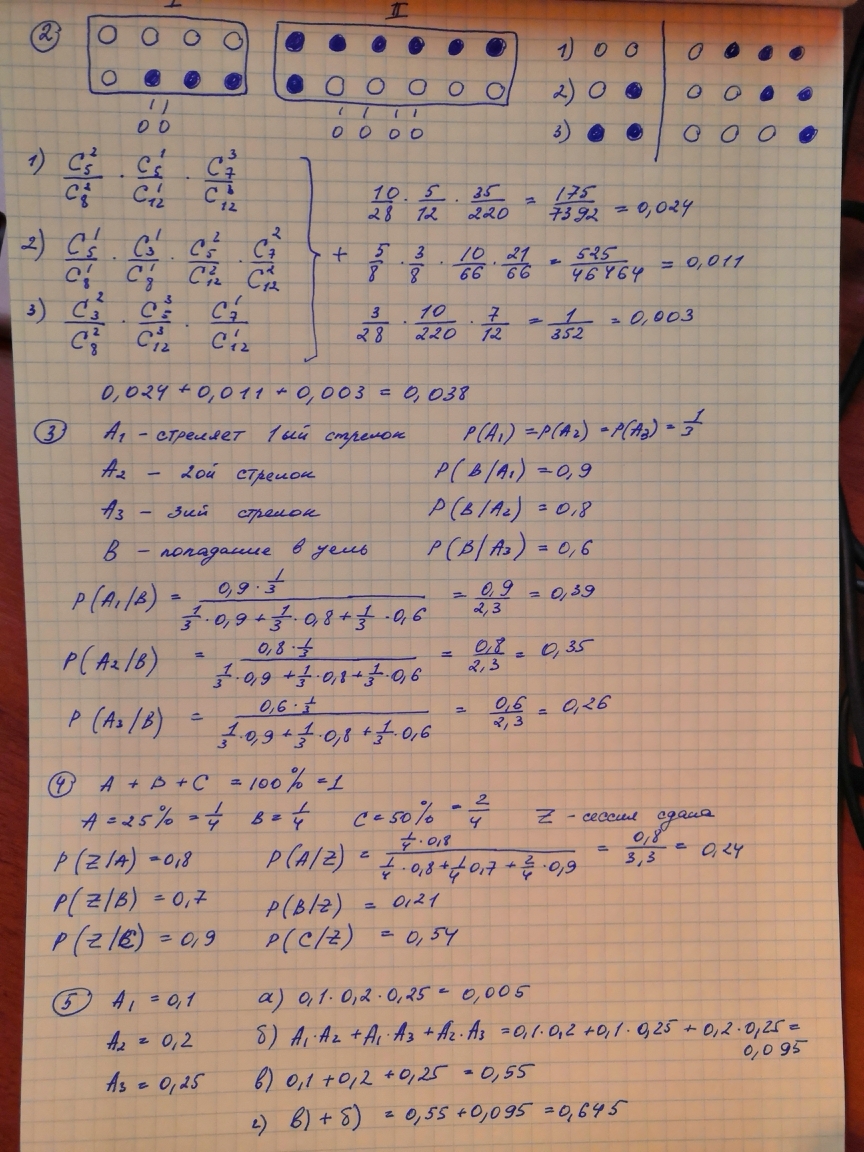 I II
②
1) 2) 3)
1) C₅²/C₈² · C₅¹/C₁₂¹ · C₇³/C₁₂³
10/28 · 5/12 · 35/220 = 175/7392 = 0,024
2) C₅¹/C₈¹ · C₃¹/C₈¹ · C₅²/C₁₂² · C₇²/C₁₂²
+ 5/8 · 3/8 · 10/66 · 21/66 = 525/46464 = 0,011
3) C₃²/C₈² · C₅³/C₁₂³ · C₇¹/C₁₂¹
3/28 · 10/220 · 7/12 = 1/352 = 0,003
0,024 + 0,011 + 0,003 = 0,038
③ A₁ – стреляет 1ый стрелок P(A₁) = P(A₂) = P(A₃) = 1/3
A₂ – 2ой стрелок P(B/A₁) = 0,9
A₃ – 3ий стрелок P(B/A₂) = 0,8
B – попадание в цель P(B/A₃) = 0,6
P(A₁/B) = (0,9 · 1/3)/(1/3 · 0,9 + 1/3 · 0,8 + 1/3 · 0,6) = 0,9/2,3 = 0,39
P(A₂/B) = (0,8 · 1/3)/(1/3 · 0,9 + 1/3 · 0,8 + 1/3 · 0,6) = 0,8/2,3 = 0,35
P(A₃/B) = (0,6 · 1/3)/(1/3 · 0,9 + 1/3 · 0,8 + 1/3 · 0,6) = 0,6/2,3 = 0,26
④ A + B + C = 100% = 1
A = 25% = 1/4 B = 1/4 C = 50% = 2/4 Z – сессия сдана
P(Z/A) = 0,8 P(A/Z) = (1/4 · 0,8)/(1/4 · 0,8 + 1/4 0,7 + 2/4 · 0,9) = 0,8/3,3 = 0,24
P(Z/B) = 0,7 P(B/Z) = 0,21
P(Z/C) = 0,9 P(C/Z) = 0,54
⑤ A₁ = 0,1 а) 0,1 · 0,2 · 0,25 = 0,005
A₂ = 0,2 б) A₁·A₂ + A₁·A₃ + A₂·A₃ = 0,1·0,2 + 0,1·0,25 + 0,2·0,25 =
0,095
A₃ = 0,25 в) 0,1 + 0,2 + 0,25 = 0,55
г) в) + б) = 0,55 + 0,095 = 0,645